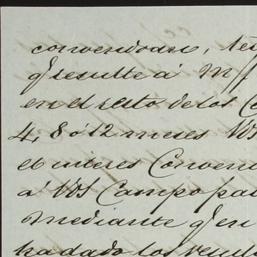 convendran, te
q. resulte á m/
en el resto de los C
4, 8 ó 12 meses Vds
el interes Conven
á Vds Campo pa
mediante q. en
ha dado los resul